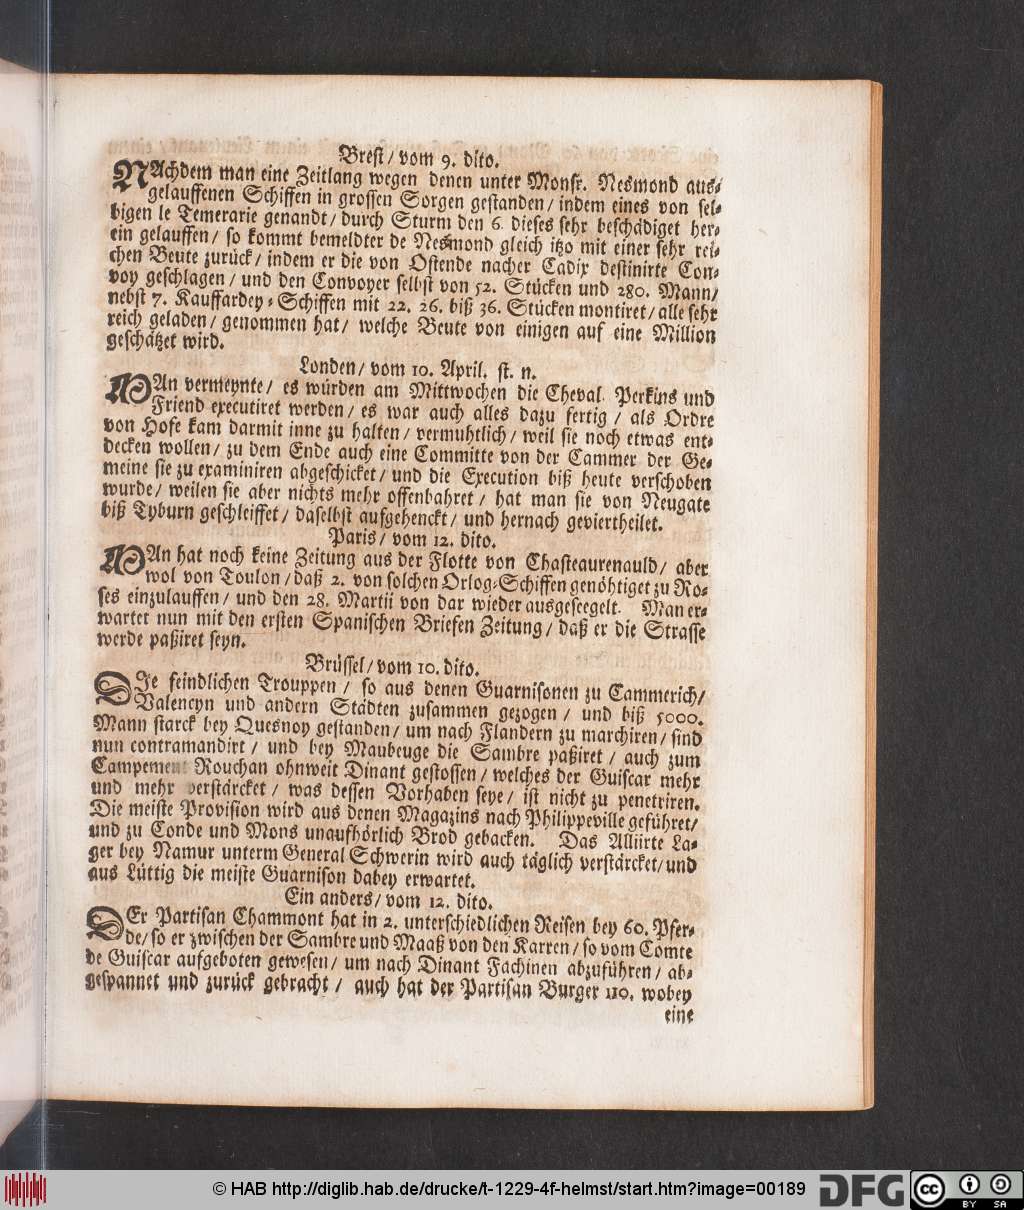 Brest / vom 9. dito.
NAchdem man eine Zeitlang wegen denen unter Monsr. Nesmond aus-
gelauffenen Schiffen in grossen Sorgen gestanden / indem eines von sel-
bigen le Temerarie genandt / durch Sturm den 6. dieses sehr beschädiget her-
ein gelauffen / so kommt bemeldter de Nesmond gleich itzo mit einer sehr rei-
chen Beute zurück / indem er die von Ostende nacher Cadix destinirte Con-
voy geschlagen / und den Convoyer selbst von 52. Stücken und 280. Mann /
nebst 7. Kauffardey-Schiffen mit 22. 26. biß 36. Stücken montiret / alle sehr
reich geladen / genommen hat / welche Beute von einigen auf eine Million
geschätzet wird.
Londen / vom 10. April. st. n.
MAn vermeynte / es würden am Mittwochen die Cheval. Perkins und
Friend executiret werden / es war auch alles dazu fertig / als Ordre
von Hofe kam darmit inne zu halten / vermuhtlich / weil sie noch etwas ent-
decken wollen / zu dem Ende auch eine Committe von der Cammer der Ge-
meine sie zu examiniren abgeschicket / und die Execution biß heute verschoben
wurde / weilen sie aber nichts mehr offenbahret / hat man sie von Neugate
biß Tyburn geschleiffet / daselbst aufgehenckt / und hernach geviertheilet.
Paris / vom 12. dito.
MAn hat noch keine Zeitung aus der Flotte von Chasteaurenauld / aber
wol von Toulon / daß 2. von solchen Orlog-Schiffen genöhtiget zu Ro-
ses einzulauffen / und den 28. Martii von dar wieder ausgeseegelt. Man er-
wartet nun mit den ersten Spanischen Briefen Zeitung / daß er die Strasse
werde paßiret seyn.
Brüssel / vom 10. dito.
DIe feindlichen Trouppen / so aus denen Guarnisonen zu Cammerich /
Valencyn und andern Städten zusammen gezogen / und biß 5000.
Mann starck bey Quesnoy gestanden / um nach Flandern zu marchiren / sind
nun contramandirt / und bey Maubeuge die Sambre paßiret / auch zum
Campement Rouchan ohnweit Dinant gestossen / welches der Guiscar mehr
und mehr verstärcket / was dessen Vorhaben seye / ist nicht zu penetriren.
Die meiste Provision wird aus denen Magazins nach Philippeville geführet /
und zu Conde und Mons unaufhörlich Brod gebacken. Das Alliirte La-
ger bey Namur unterm General Schwerin wird auch täglich verstärcket / und
aus Lüttig die meiste Guarnison dabey erwartet.
Ein anders / vom 12. dito.
DEr Partisan Chammont hat in 2. unterschiedlichen Reisen bey 60. Pfer-
de / so er zwischen der Sambre und Maaß von den Karren / so vom Comte
de Guiscar aufgeboten gewesen / um nach Dinant Fachinen abzuführen / ab-
gespannet und zurück gebracht / auch hat der Partisan Burger 110. wobey
eine
© HAB http://diglib.hab.de/drucke/t-1229-4f-helmst/start.htm?image=00189
DFG
cc
BY SA